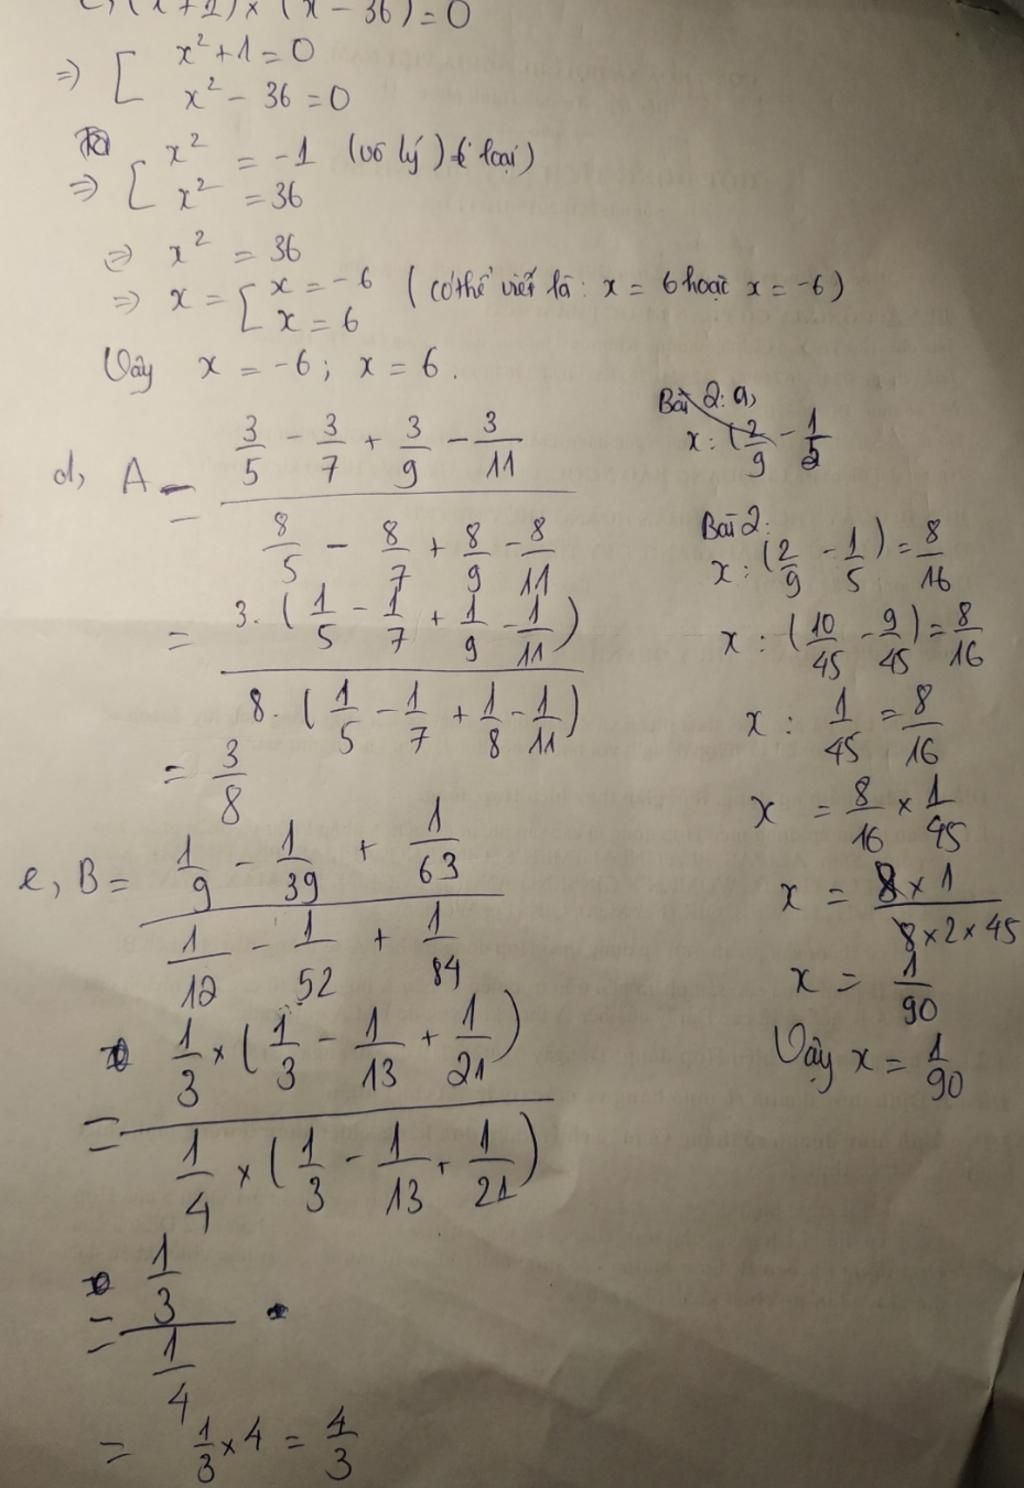 c, (x²+1) × (x² - 36) = 0
=> [ x² + 1 = 0
x² - 36 = 0
=> [ x² = -1 (vô lý) (loại)
x² = 36
=> x² = 36
=> x = [ x = -6 (có thể viết là: x = 6 hoặc x = -6)
x = 6
Vậy x = -6; x = 6.
d, A = (3/5 - 3/7 + 3/9 - 3/11) / (8/5 - 8/7 + 8/9 - 8/11)
= 3. (1/5 - 1/7 + 1/9 - 1/11) / 8. (1/5 - 1/7 + 1/8 - 1/11)
= 3/8
e, B = (1/9 - 1/39 + 1/63) / (1/12 - 1/52 + 1/84)
= 1/3 × (1/3 - 1/13 + 1/21) / 1/4 × (1/3 - 1/13 + 1/21)
= 1/3 / 1/4
= 1/3 × 4 = 4/3
Bài 2: a,
x : (2/9 - 1/5
Bài 2:
x : (2/9 - 1/5) = 8/16
x : (10/45 - 9/45) = 8/16
x : 1/45 = 8/16
x = 8/16 × 1/45
x = 8 × 1 / 8 × 2 × 45
x = 1/90
Vậy x = 1/90